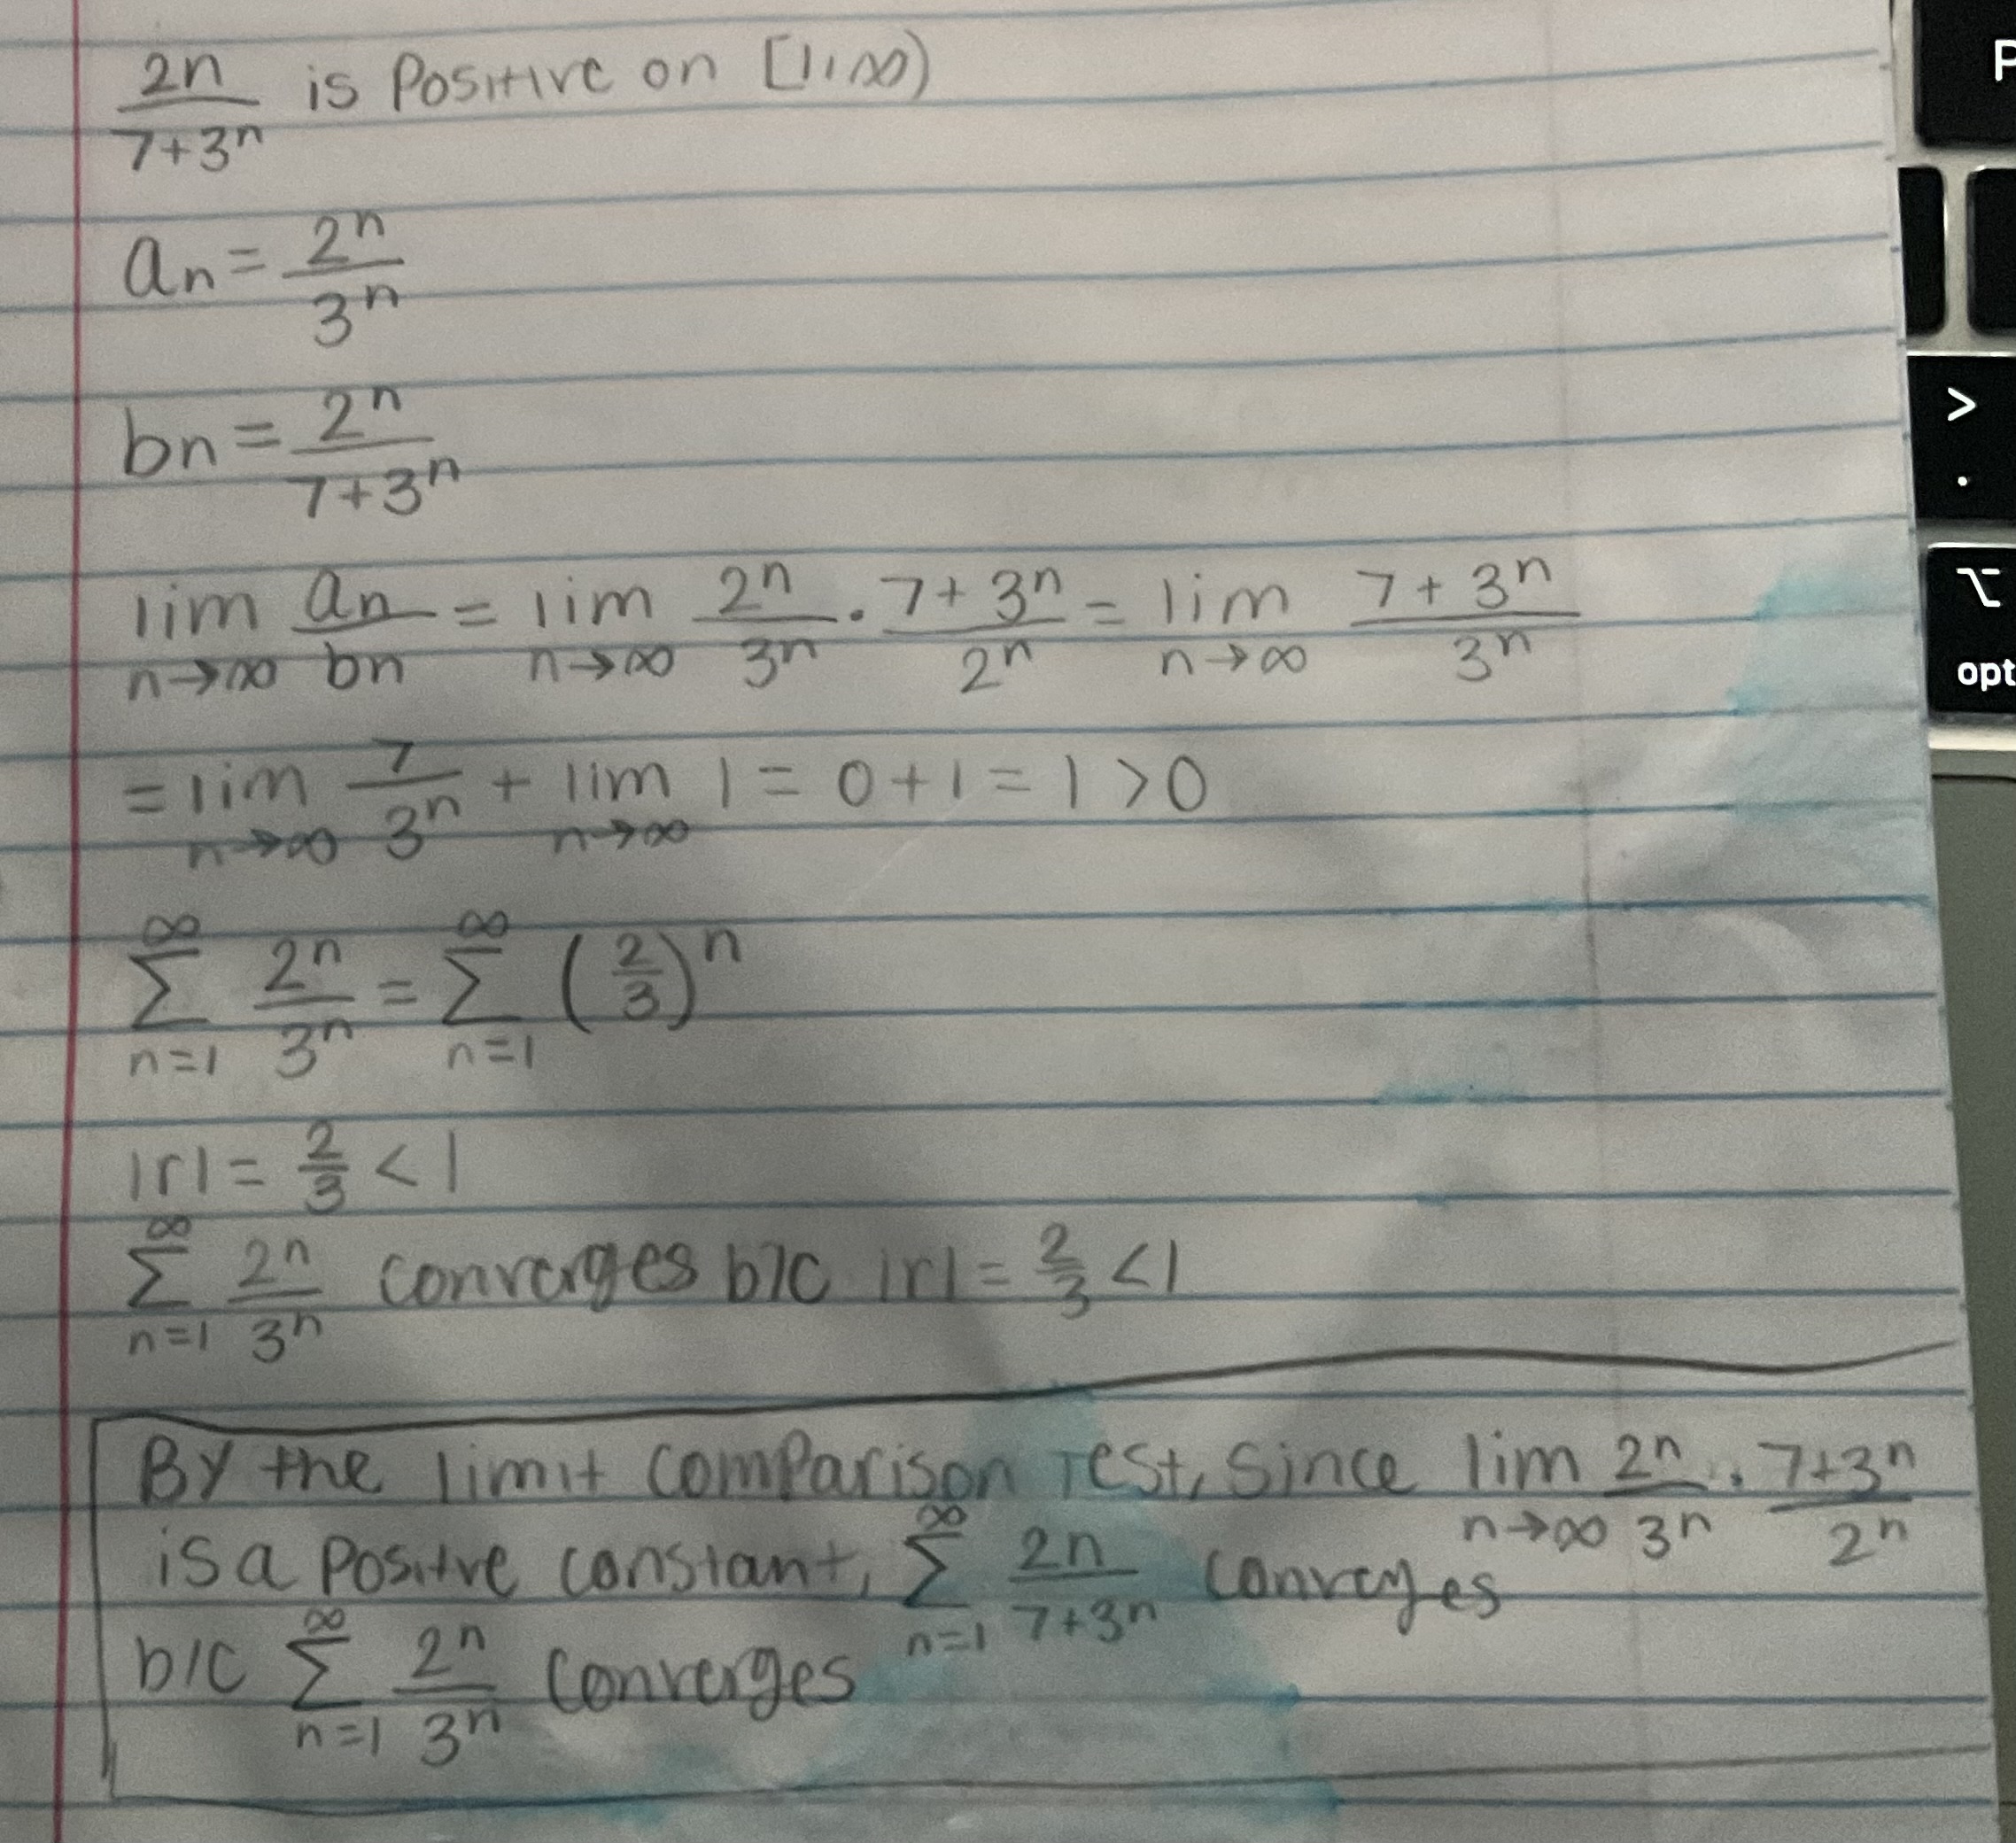 2n/(7+3ⁿ) is Positive on [1,∞)
aₙ = 2ⁿ/3ⁿ
bn = 2ⁿ/(7+3ⁿ)
lim n→∞ an/bn = lim n→∞ 2ⁿ/3ⁿ · (7+3ⁿ)/2ⁿ = lim n→∞ (7+3ⁿ)/3ⁿ
= lim n→∞ 7/3ⁿ + lim n→∞ 1 = 0+1 = 1 > 0
∞ Σ n=1 2ⁿ/3ⁿ = ∞ Σ n=1 (2/3)ⁿ
|r| = 2/3 < 1
∞ Σ n=1 2ⁿ/3ⁿ converges b/c |r| = 2/3 < 1
By the limit comparison Test, since lim n→∞ 2ⁿ/3ⁿ · (7+3ⁿ)/2ⁿ
is a positive constant, ∞ Σ n=1 2n/(7+3ⁿ) converges
b/c ∞ Σ n=1 2ⁿ/3ⁿ converges
P
>
.
⌥
opt